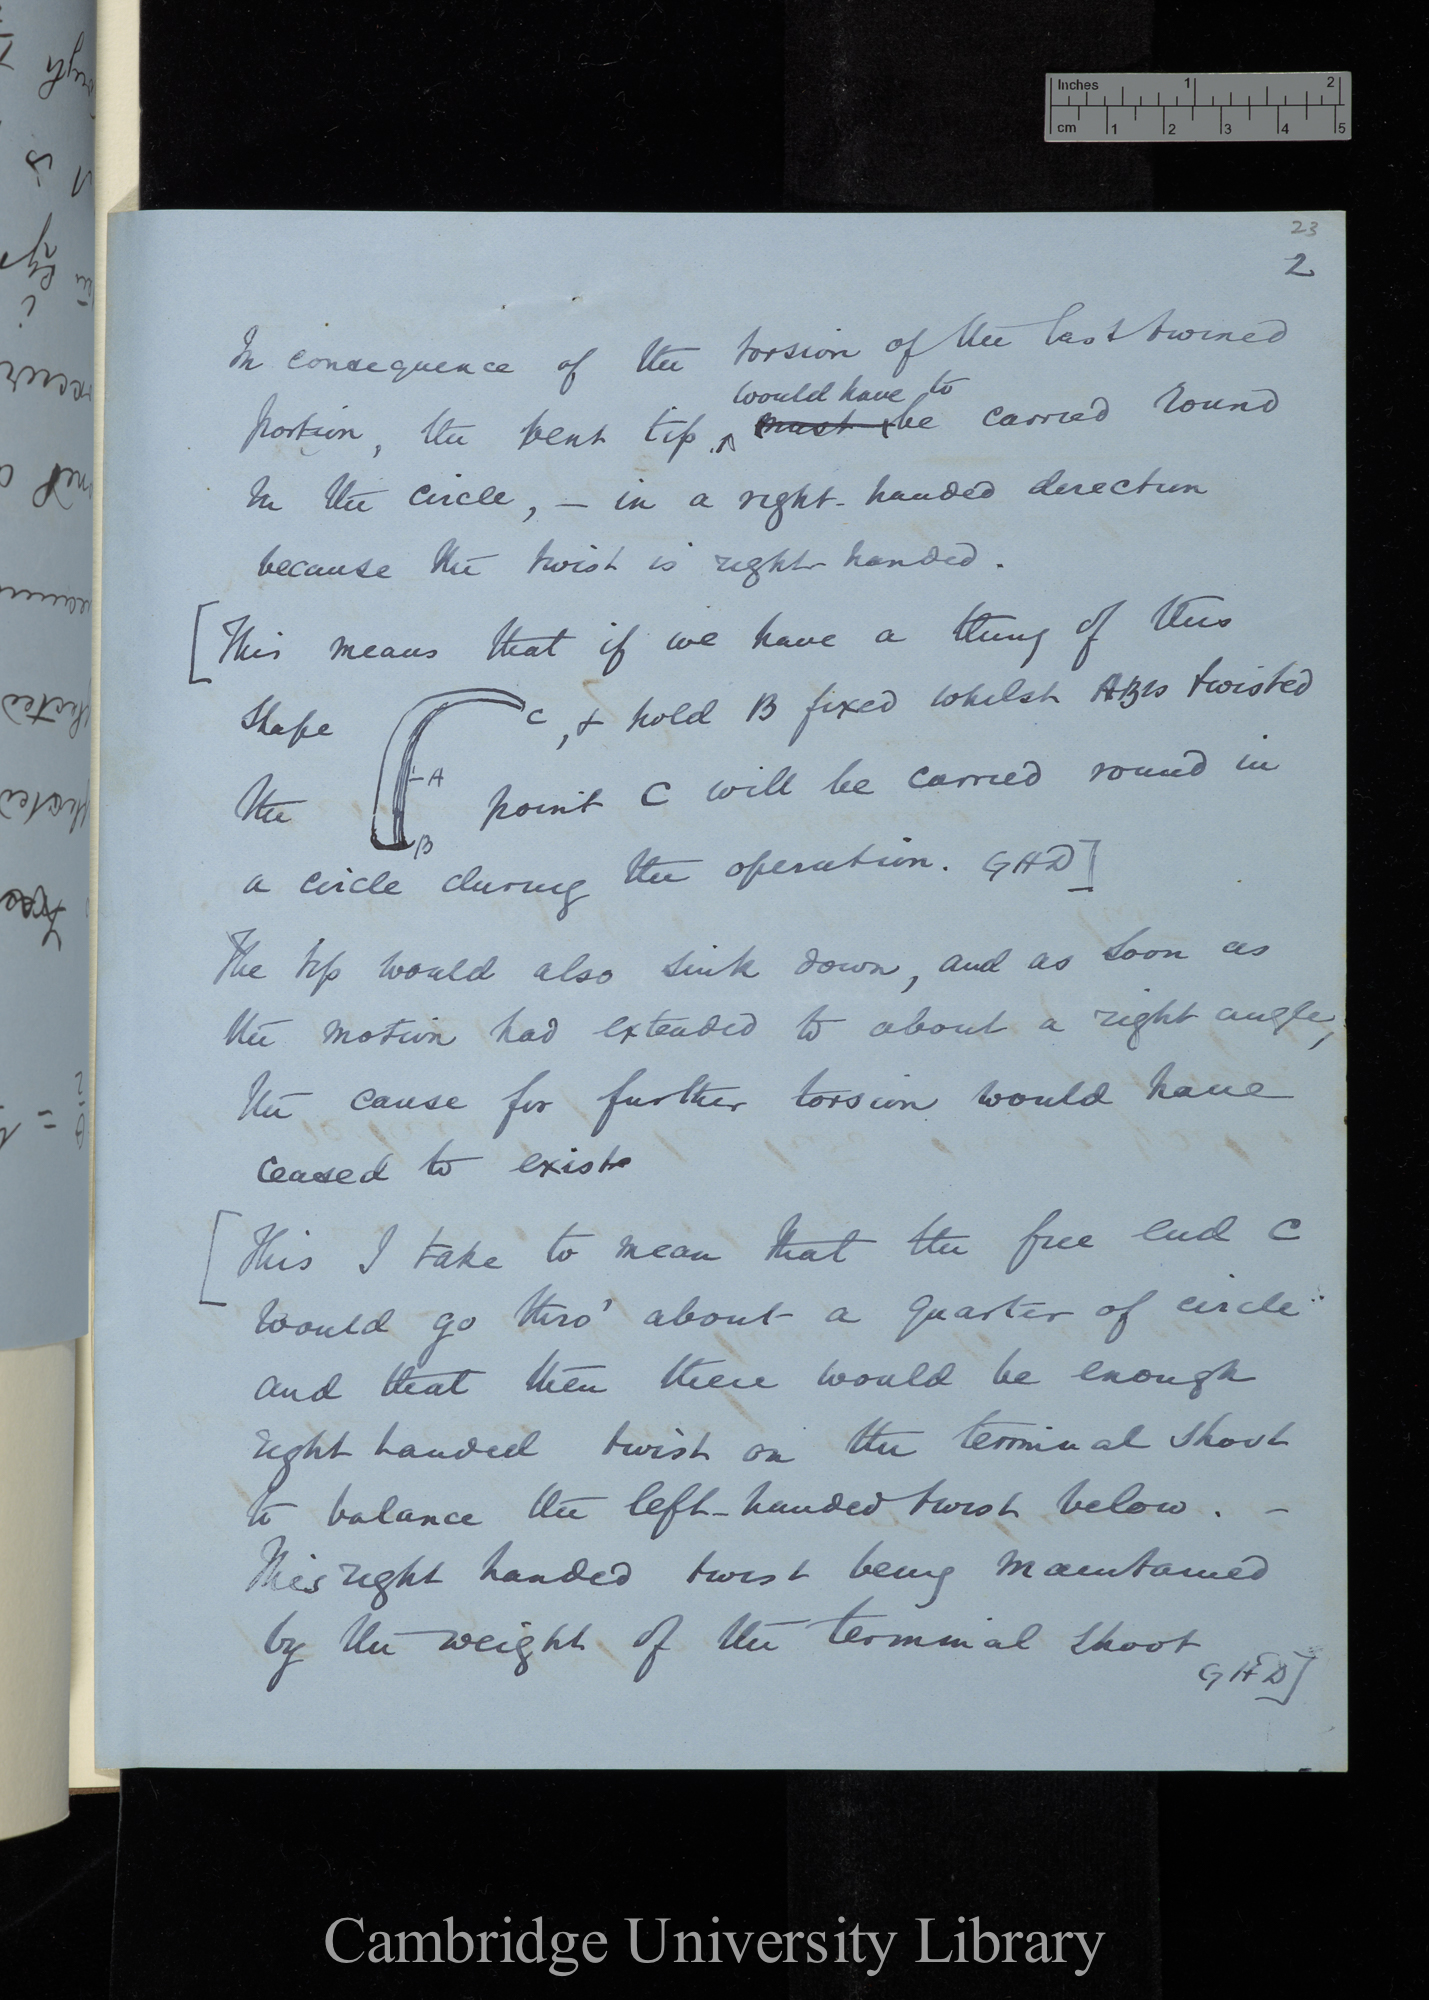 Inches 1 2
cm 1 2 3 4 5
23
2
In consequence of the torsion of the last twined
would have to
portion, the bent tip ^ must be carried round
in the circle, — in a right-handed direction
because the twist is right handed.
[This means that if we have a thing of this
shape C, & hold B fixed whilst AB is twisted
A
the point C will be carried round in
B
a circle during the operation. GHD]
The tip would also sink down, and as soon as
the motion had extended to about a right angle,
the cause for further torsion would have
ceased to exist
[This I take to mean that the free end C
would go thro' about a quarter of circle
and that then there would be enough
right handed twist on the terminal shoot
to balance the left-handed twist below. –
This right handed twist being maintained
by the weight of the terminal shoot
GHD]
Cambridge University Library